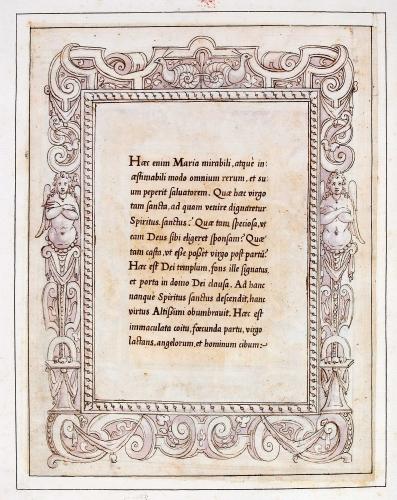 Hæc enim Maria mirabili, atque in=
æstimabili modo omnium rerum, et su
um peperit saluatorem. Quæ hæc virgo
tam sancta, ad quam venire dignaretur
Spiritus sanctus? Quæ tam speciosa, vt
eam Deus sibi eligeret sponsam? Quæ
tam casta, vt esse posset virgo post partū?
Hæc est Dei templum, fons ille signatus,
et porta in domo Dei clausa. Ad hanc
nanque Spiritus sanctus descendit, hanc
virtus Altissimi obumbrauit. Hæc est
immaculata coitu, fœcunda partu, virgo
lactans, angelorum, et hominum cibum:~